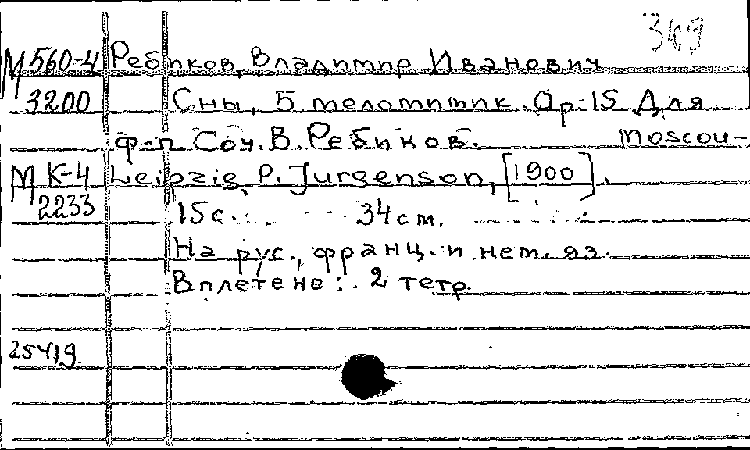 349
М 560-4 Ребиков, Владимир Иванович
3200 Сны, 5 меломимик. Op. 15 Для
ф-п Соч. В. Ребиков. Moscou-
М К-4 Leipzig, P. Jurgenson, [1900].
2233 15 с. 34 см.
На рус., франц. и нем. яз.
Вплетено: 2 тетр.
25419